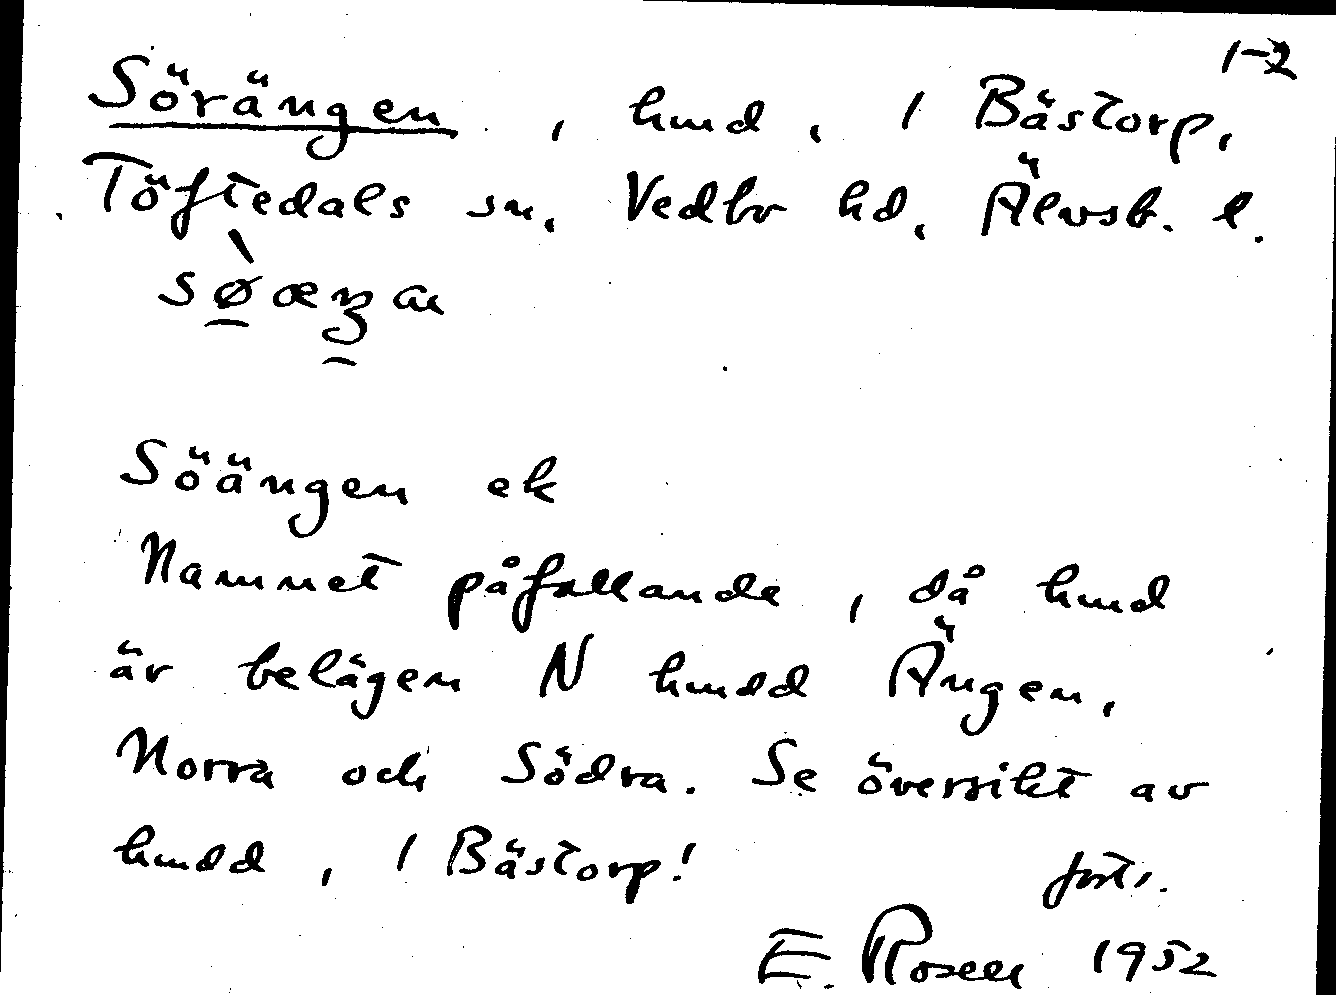 1-2
Sörängen, hmd, 1 Bästorp,
Töftedals sn, Vedbo hd, Älvsb. l.
Söängen ek
Namnet påfallande, då hmd
är belägen N hmdd Ängen,
Norra och Södra. Se översikt av
hmdd, 1 Bästorp!
forts.
E. Rosell 1952